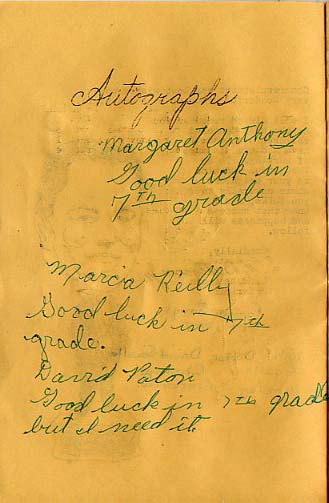 Autographs
Margaret Anthony
Good luck in
7th grade
Marcia Reilly
Good luck in 7th
grade.
David Paton
Good luck in 7th grade
but I need it.